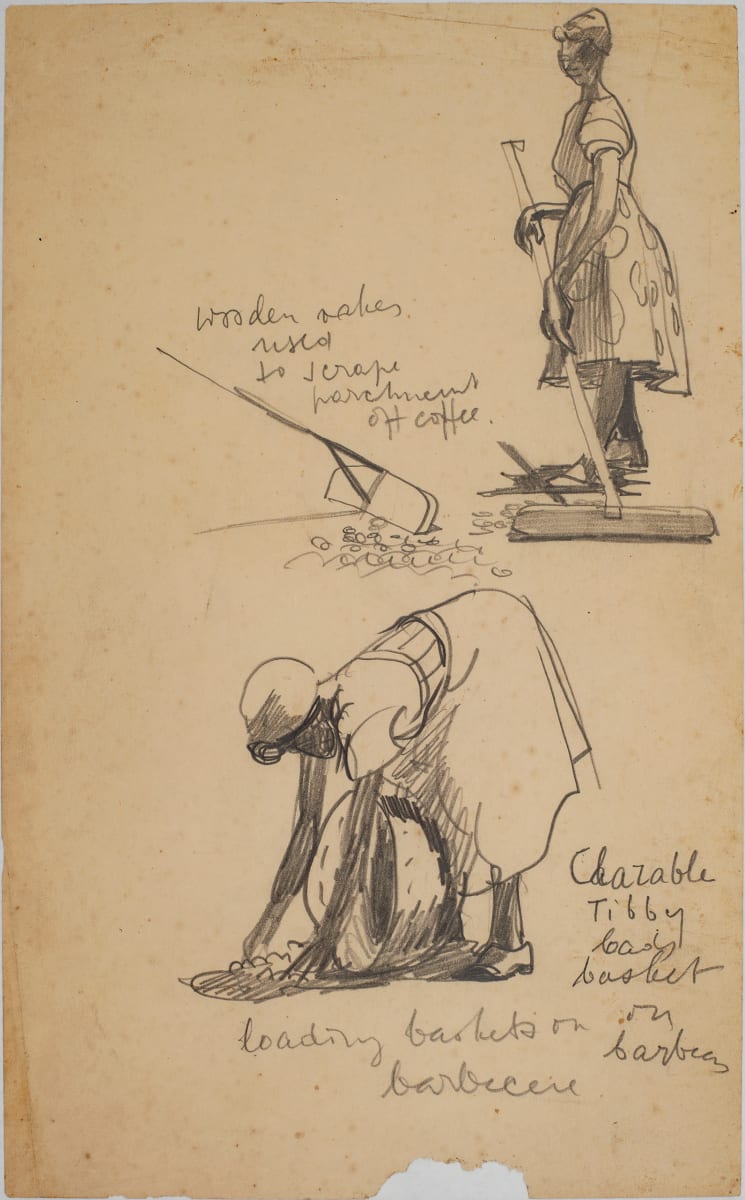 wooden rakes
used
to scrape
parchment
off coffee.
Charable
Tibby
loads
basket
on
barbecue
loading baskets on
barbecue